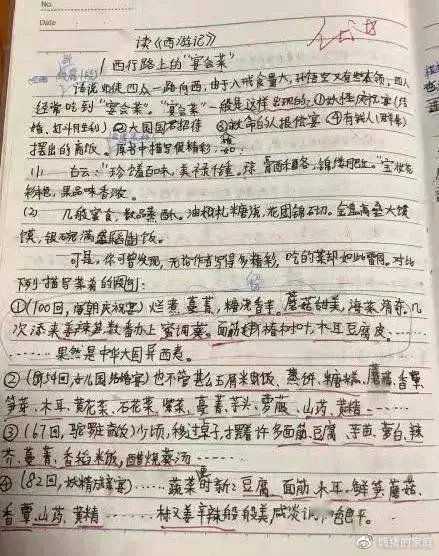 No.
Date
读《西游记》
1 西行路上的"宴会菜"
话说师徒四众一路向西,由于八戒食量大,孙悟空又有些本领,四人
经常吃到"宴会菜"。"宴会菜"一般是这样出现的:①妖怪庆贺宴(结
婚、打斗胜利)②大国国君招待 ③救命的人报恩宴 ④有钱人(群众)
摆出的斋饭。原书中描写很精彩,如:
(1) 珍馐百味,美禄千钟。琼膏酥酪,锦缕肥红。"宝妆花
彩艳,果品味香浓。
(2) 几般蜜食,数品蒸酥。油札糖浇,花团锦砌。金盘高垒大馒
馍,银碗满盛香稻饭。
可是,你可曾发现,无论作者写得多精彩,吃的菜却如此雷同。对比
下列描写菜肴的图例:
①(100回,唐朝庆祝宴)烂煮蔓菁,糖浇香芋。蘑菇甜美,海菜清奇。几
次添来姜辣笋,数番办上蜜调葵。面筋椿树叶,木耳豆腐皮。……
……果然是中华大国异西夷。
②(第54回,女儿国结婚宴)也不管甚么玉屑米饭、蒸饼、糖糕、蘑菇、香蕈、
笋芽、木耳、黄花菜、石花菜、紫菜、蔓菁、芋头、萝菔、山药、黄精……
③(67回,驼罗庄斋饭)少顷,移过桌子,摆着许多面筋、豆腐、芋苗、萝白、辣
芥、蔓菁、香稻米饭,醋烧葵汤……
④(82回,妖精成亲宴)……蔬菜更时新:豆腐、面筋、木耳、鲜笋、蘑菇、
香蕈、山药、黄精……椒姜辛辣般般美,咸淡调和色色平。
@嗨猪的家庭